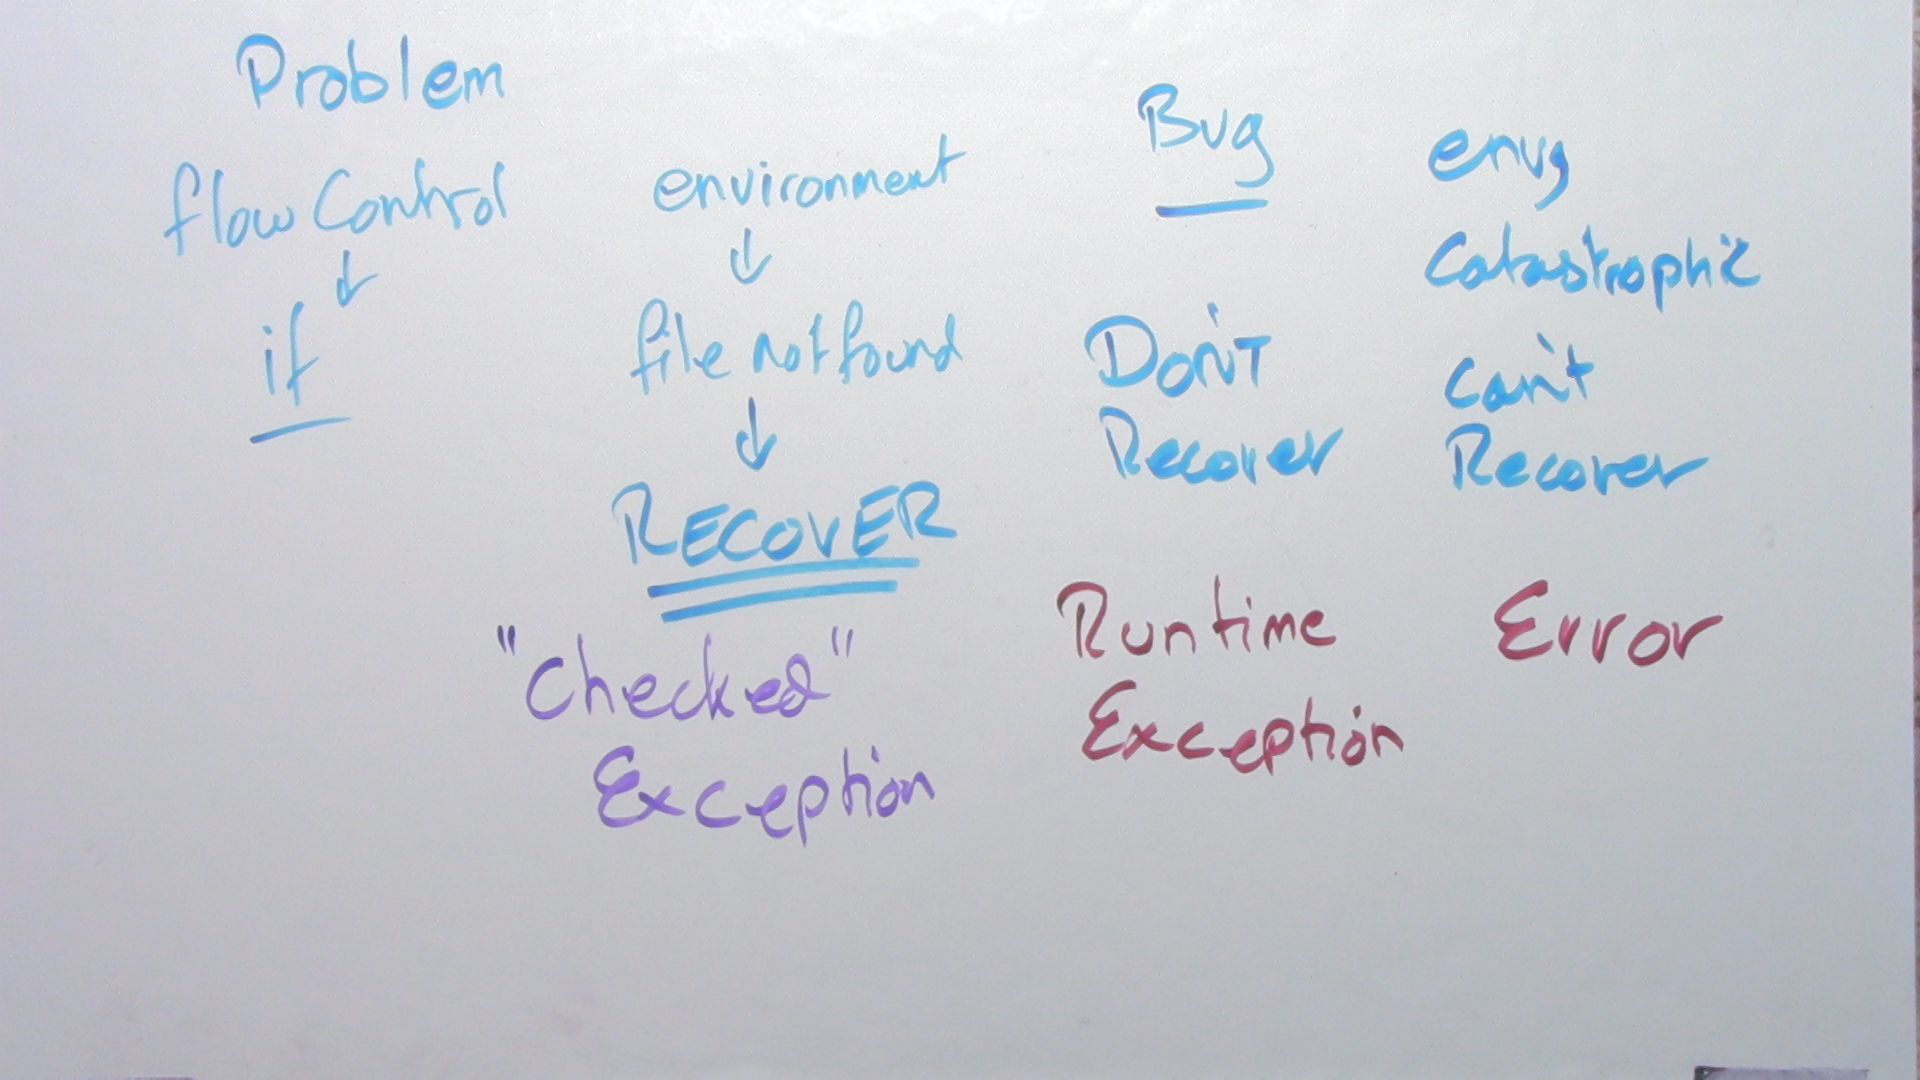 Problem
flow Control
if
environment
file not found
RECOVER
"Checked"
Exception
Bug
Don't
Recover
Runtime
Exception
Catastrophic
Can't
Recover
Error